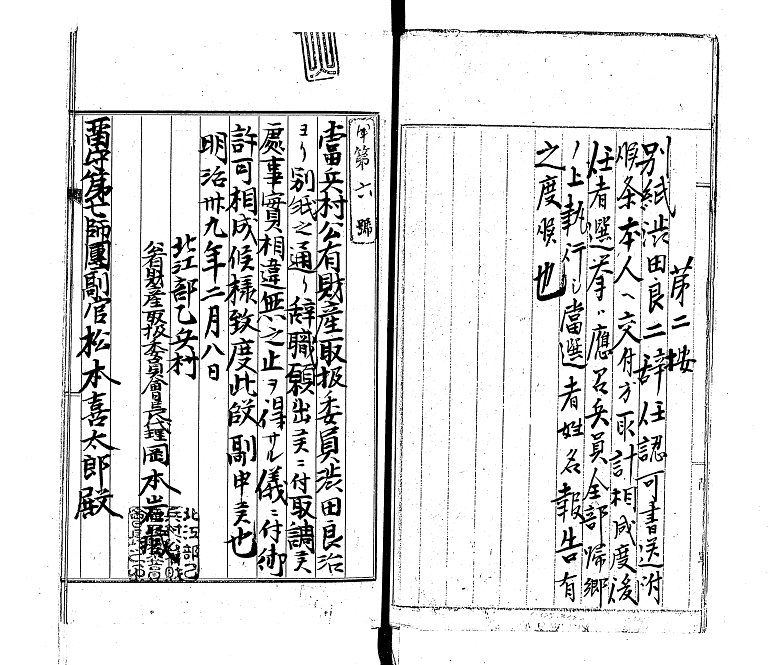 第二按
別紙渋田良二辞任認可書送附
候条本人ヘ交付方取計相成度後
任者選挙ハ應召兵員全部帰郷
ノ上執行シ當選者姓名報告有
之度候也
第六號
當兵村公有財産取扱委員渋田良治
ヨリ別紙之通リ辞職願出候ニ付取調候
處事實相違無之止ヲ得サル儀ニ付御
許可相成候様致度此段副申候也
明治卅九年二月八日
北江部乙兵村
公有財産取扱委員會長代理岡本
留守第七師團副官松本喜太郎殿